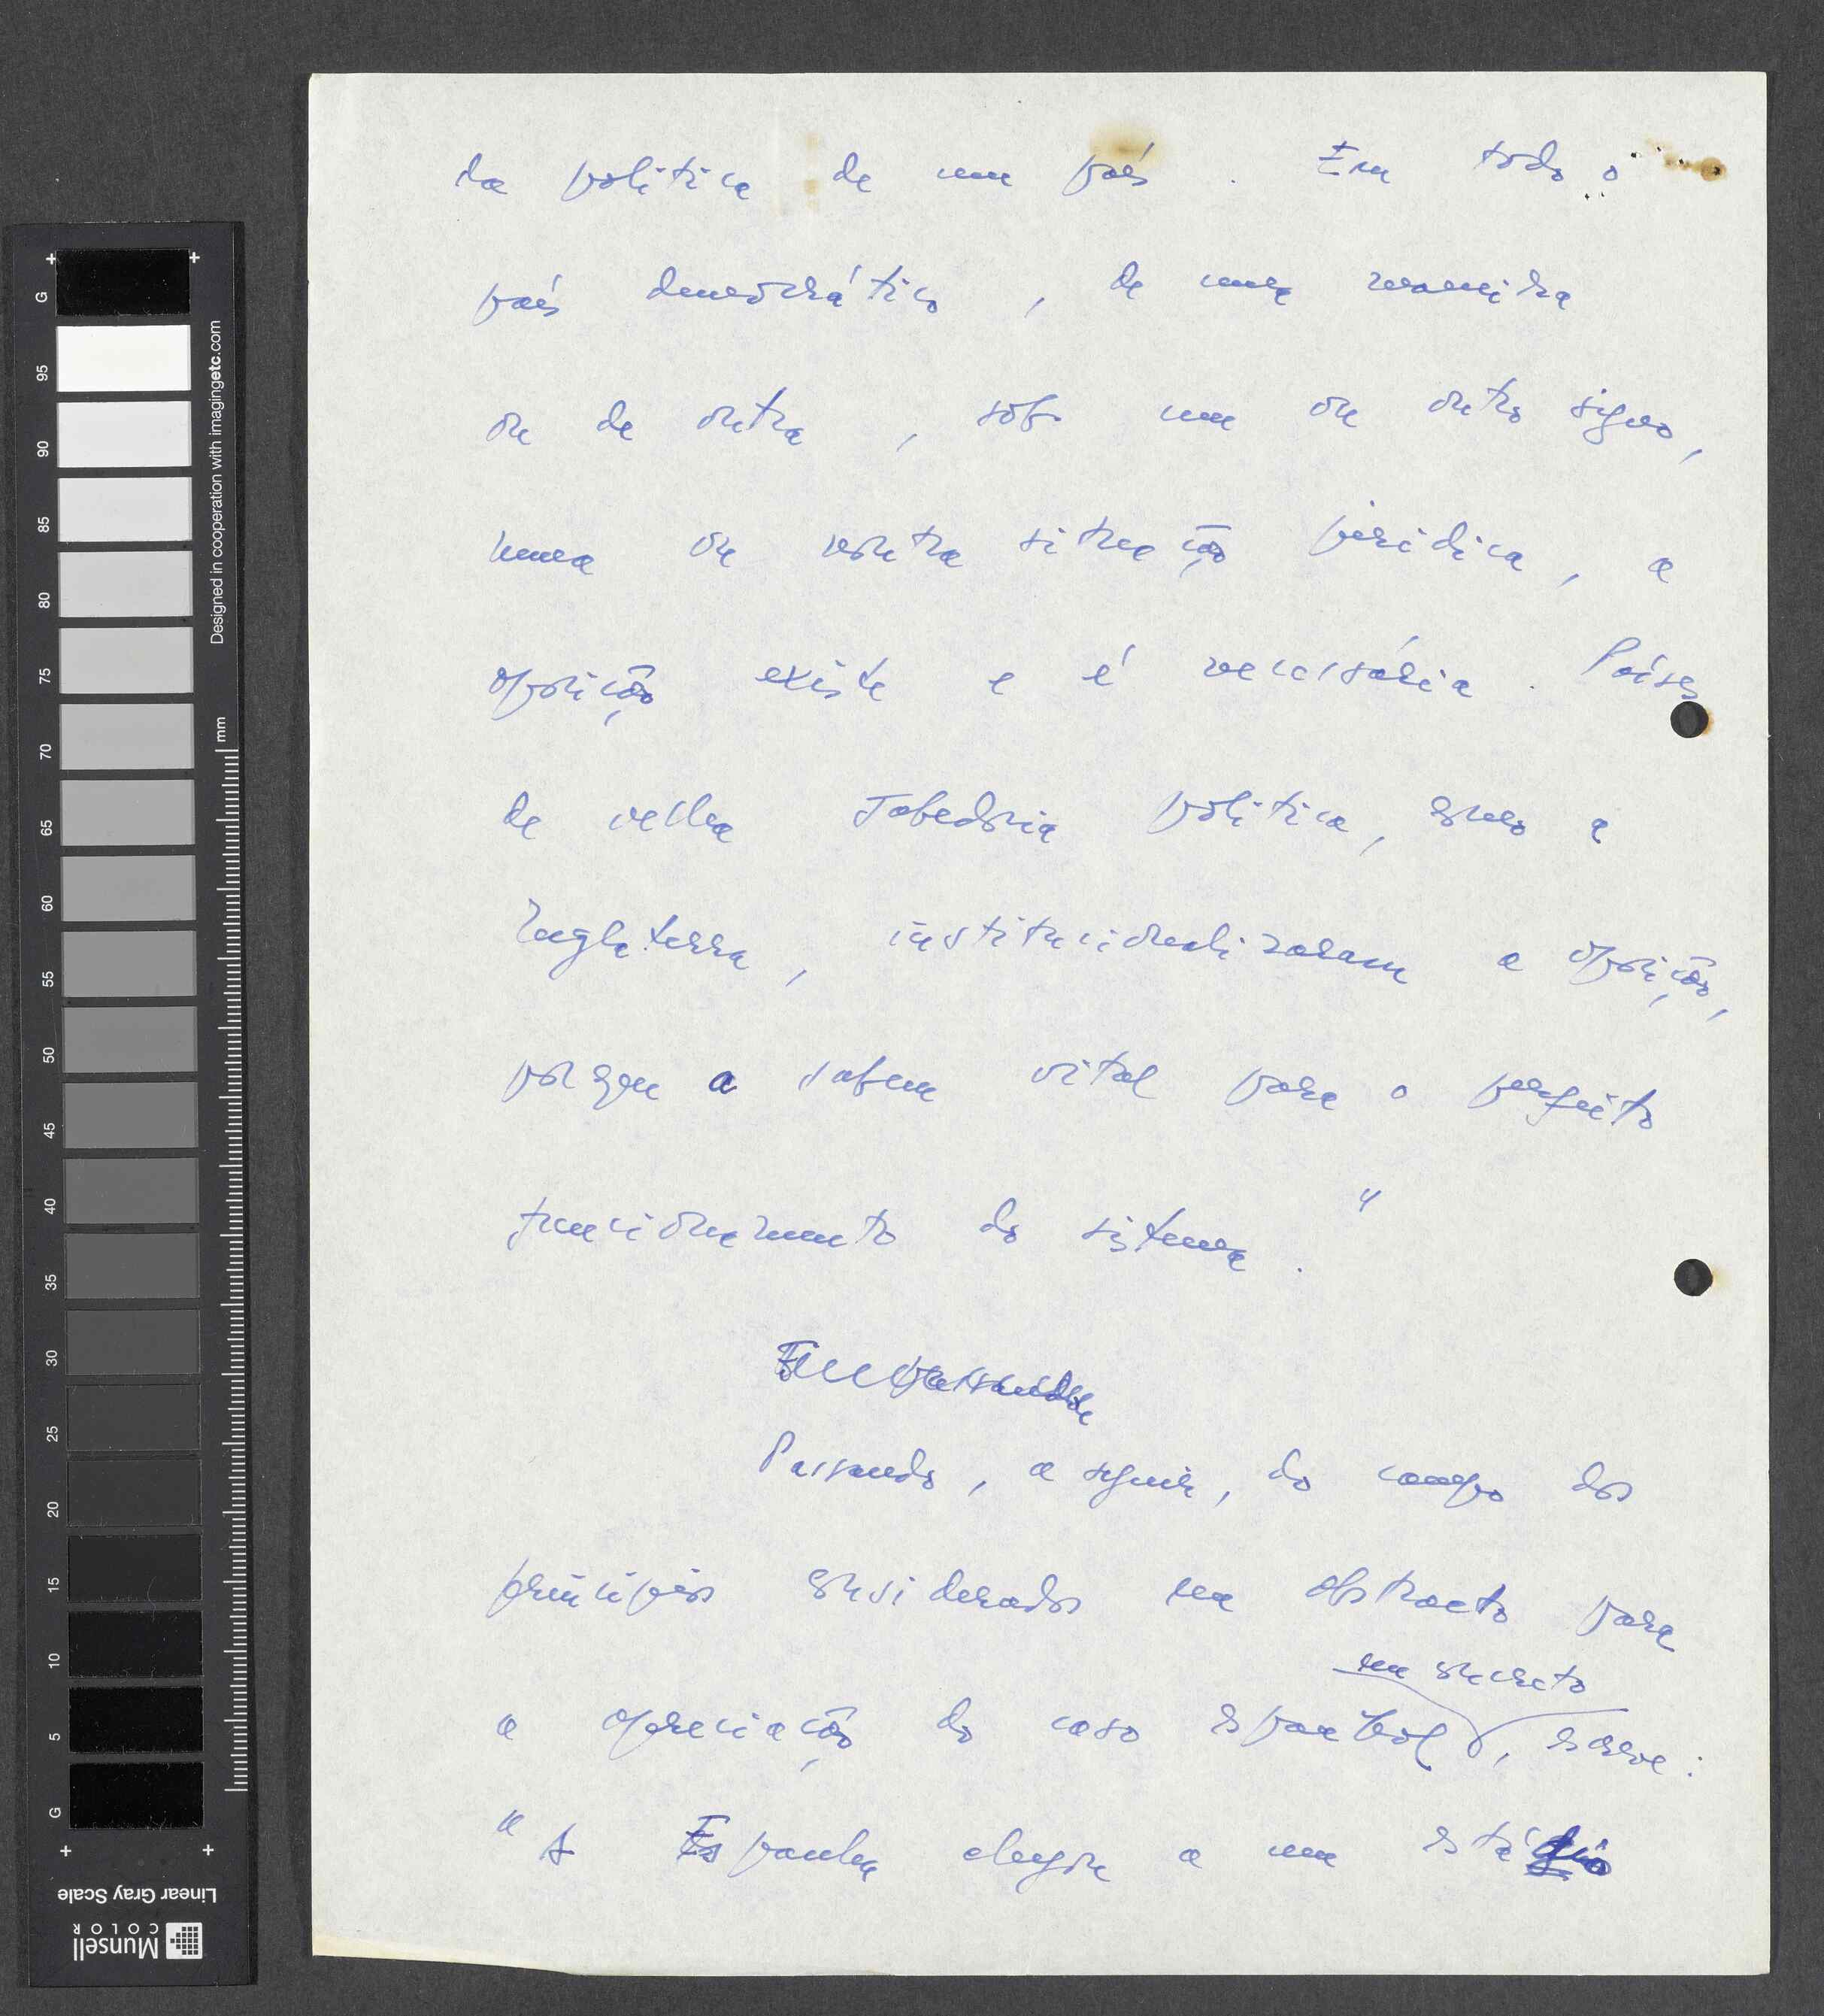 da politica de um país. Em todo o
país democrático, de uma maneira
ou de outra, sob um ou outro signo,
numa ou noutra situação juridica, a
oposição existe e é necessária. Países
de velha sabedoria politica, como a
Inglaterra, institucionalizaram a oposição,
porque a sabem vital para o perfeito
funcionamento do sistema."
Passando, a seguir, do campo dos
princípios considerados em abstracto para
em concreto
a apreciação do caso espanhol, escreve:
"A Espanha chegou a um estádio
G 95 90 85 80 75 70 65 60 55 50 45 40 35 30 25 20 15 10 5 G
mm
Designed in cooperation with imagingetc.com
Linear Gray Scale
Munsell
COLOR